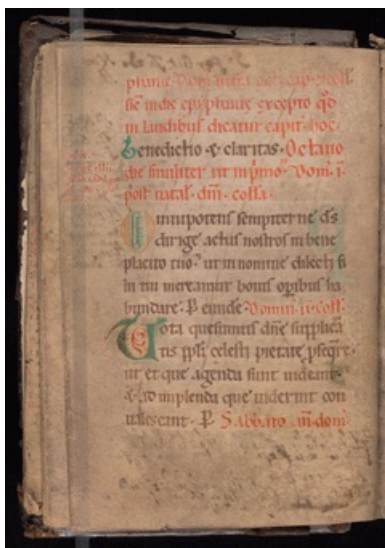 phanie. Dom̄ infra oct̄ cap̄ ⁊ coll̄.
sic̄ in die epyphanie excepto qd̄
in laudibus dicatur capit̄ hoc.
Benedictio & claritas. Octauo
die similiter ut in pͥmo. Dom̄. i.
post natal̄. dm̄. coll̄a.
Omnipotens sempiterne d̄s
dirige actus nostros in bene
placito tuo. ut in nomine dilecti fi
lii tui mereamur bonis oꝑibus ha
bundare. P̄ eunde Domin̄. ii. coll̄.
Vota quesumus dn̄e supplica
tis ppl̄i celesti pietate ꝓseq̄re.
ut et que agenda sunt uideant.
& ad implenda que uiderint con
ualescant. P̄. Sabbato. iii. dom̄